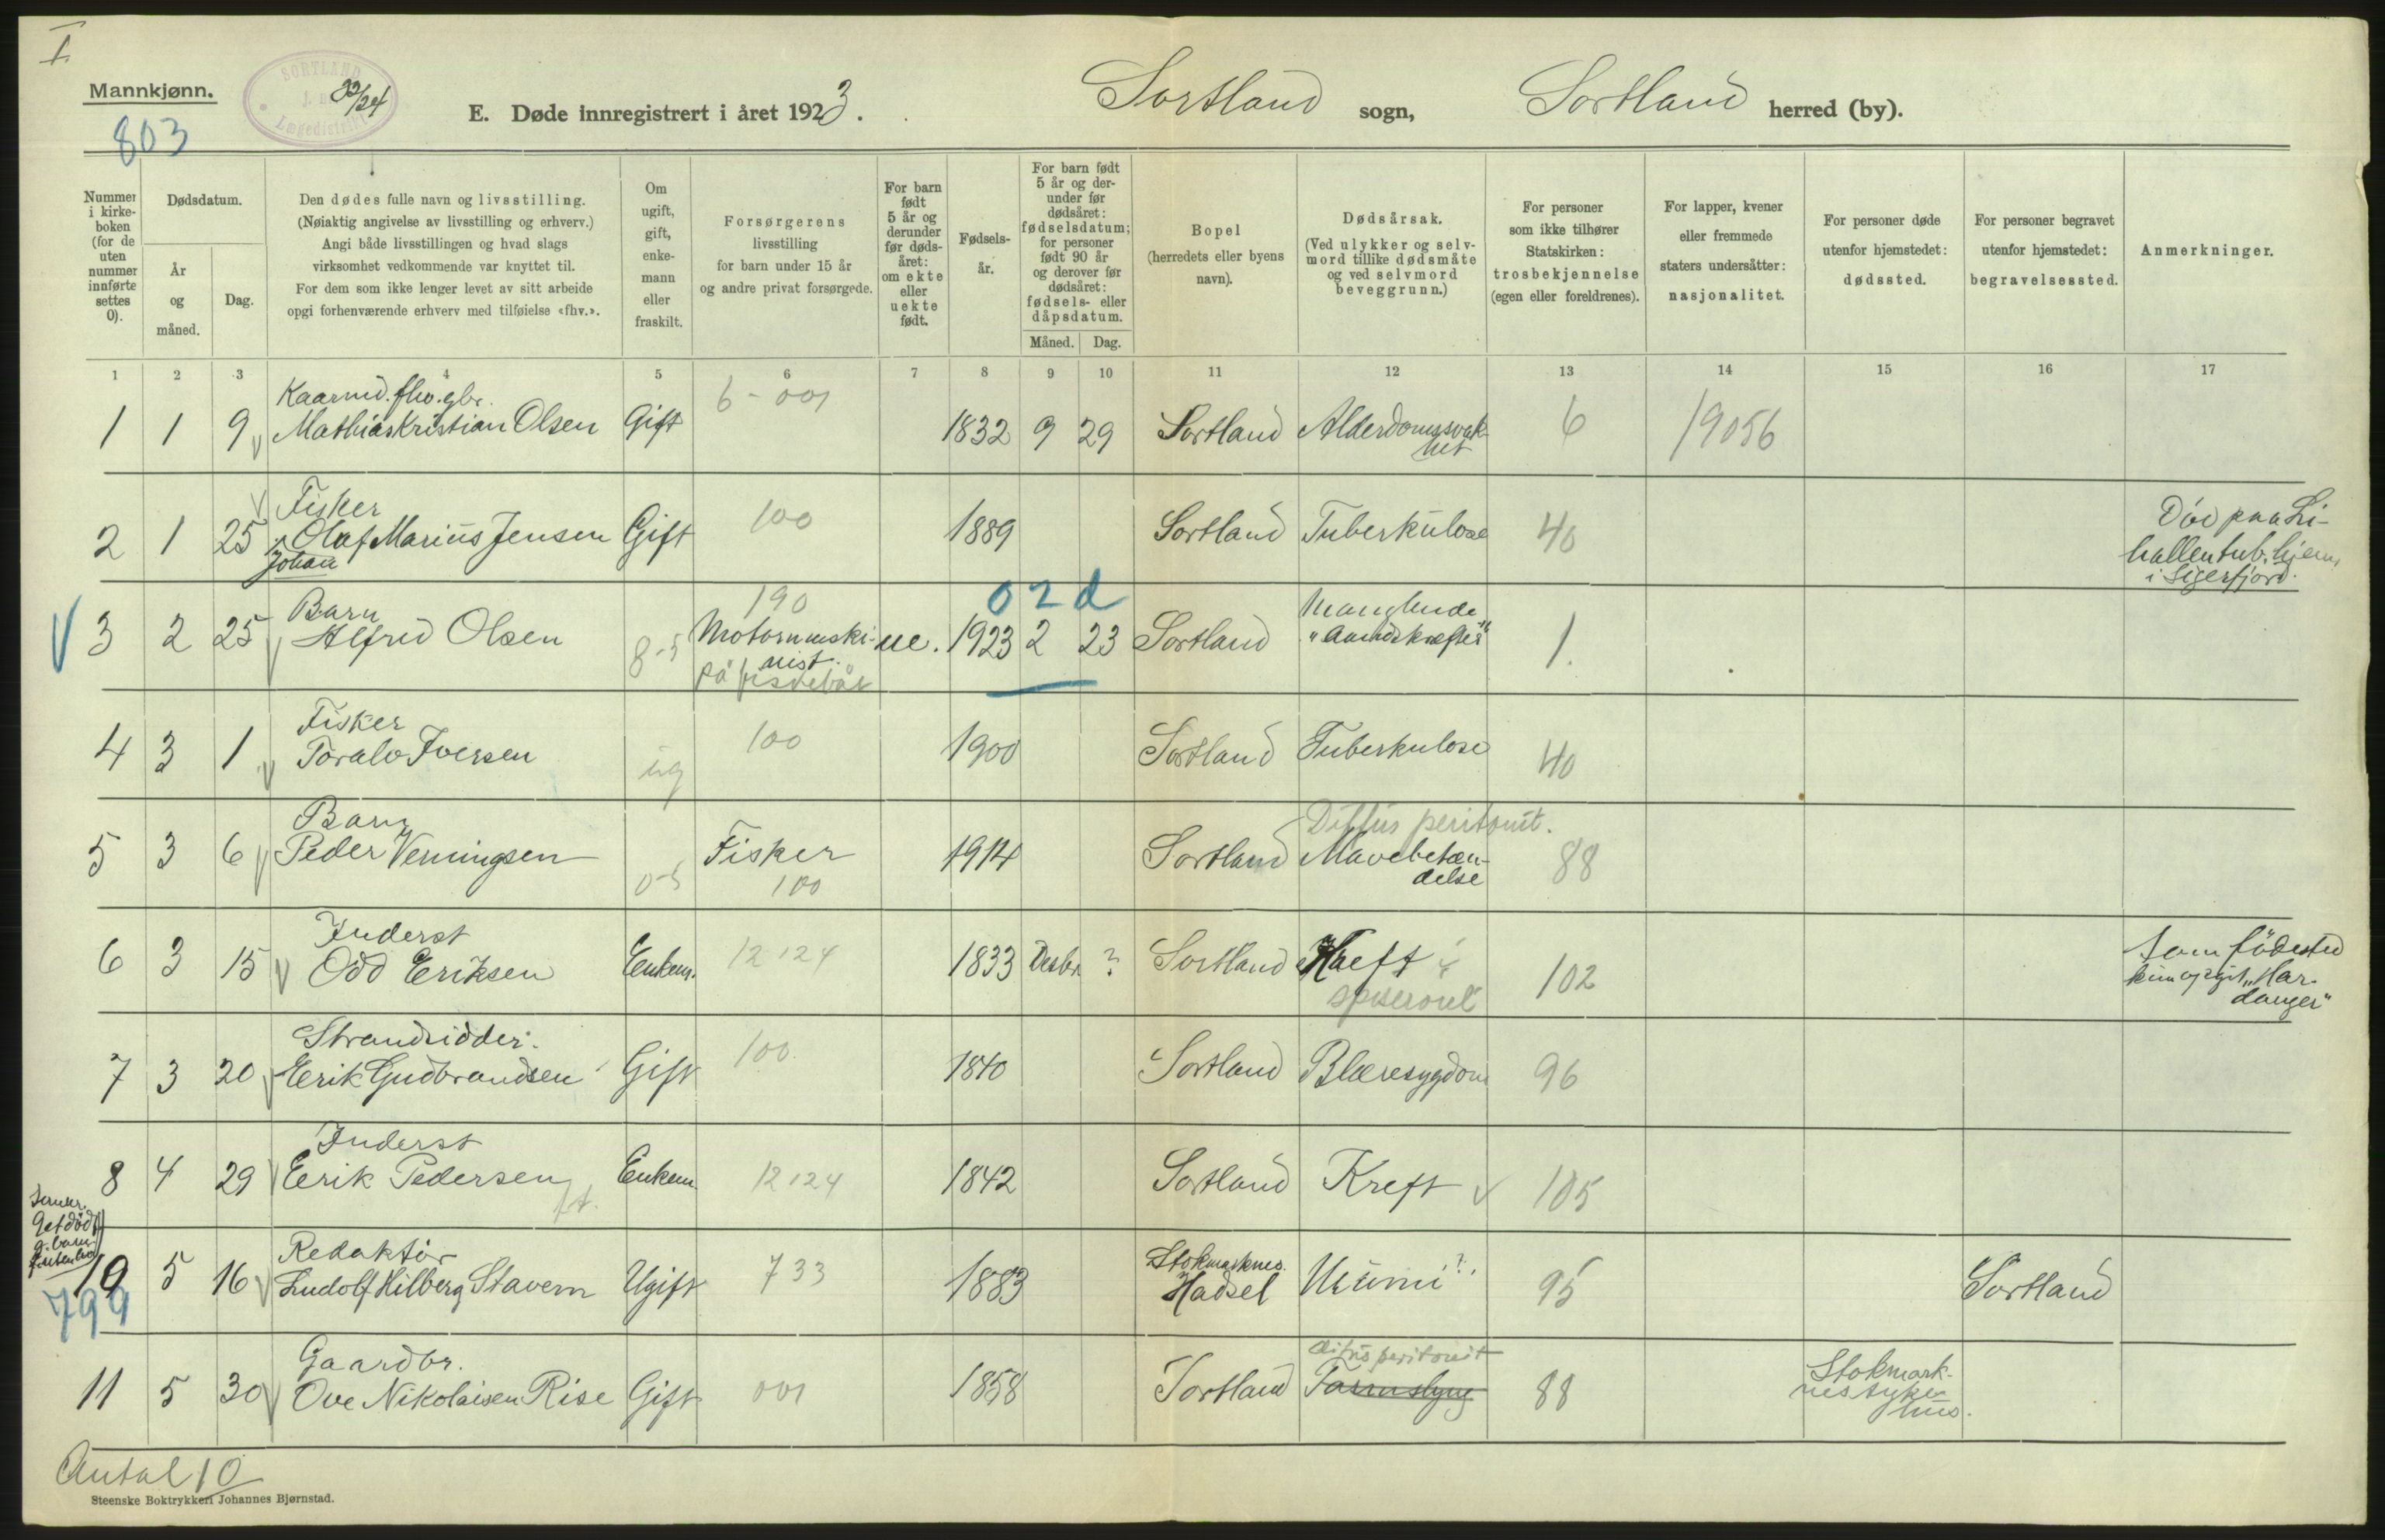 I.
Mannkjønn.
SORTLAND
Lægedistrikt
22/24
803
E. Døde innregistrert i året 1923.
Sortland sogn, Sortland herred (by).
Nummer i kirkeboken (for de uten nummer innførte settes 0).
Dødsdatum.
År og måned.
Dag.
Den dødes fulle navn og livsstilling.
(Nøiaktig angivelse av livsstilling og erhverv.)
Angi både livsstillingen og hvad slags
virksomhet vedkommende var knyttet til.
For dem som ikke lenger levet av sitt arbeide
opgi forhenværende erhverv med tilføielse «fhv.».
Om ugift, gift, enkemann eller fraskilt.
Forsørgerens
livsstilling
for barn under 15 år
og andre privat forsørgede.
For barn født 5 år og derunder før dødsåret: om ekte eller uekte født.
Fødselsår.
For barn født 5 år og derunder før dødsåret: fødselsdatum; for personer født 90 år og derover før dødsåret: fødsels- eller dåpsdatum.
Måned. Dag.
Bopel
(herredets eller byens
navn).
Dødsårsak.
(Ved ulykker og selvmord tillike dødsmåte og ved selvmord beveggrunn.)
For personer
som ikke tilhører
Statskirken:
trosbekjennelse
(egen eller foreldrenes).
For lapper, kvener
eller fremmede
staters undersåtter:
nasjonalitet.
For personer døde
utenfor hjemstedet:
dødssted.
For personer begravet
utenfor hjemstedet:
begravelsessted.
Anmerkninger.
1 2 3 4 5 6 7 8 9 10 11 12 13 14 15 16 17
Kaarmd. fhv. gbr. 6-001
1 1 9 Mathias Kristian Olsen Gift 1832 9 29 Sortland Alderdomssvakhet 6 19056
Fisker 100
2 1 25 Olaf Marius Jensen Gift 1889 Sortland Tuberkulose 40
Johan
Død paa Li-
hallen tub. hjem
i Sigerfjord.
Barn 190 02d Manglende
3 2 25 Alfred Olsen 8-5 Motormaski- ue. 1923 2 23 Sortland "aandskræfter" 1.
nist
på fiskebåt
Fisker 100
4 3 1 Toralv Iversen ug 1900 Sortland Tuberkulose 40
Barn Diffus peritonit.
5 3 6 Peder Venningsen 0-5 Fisker 1914 Sortland Mavebetæn- 88
100 delse
Inderst
6 3 15 Odd Eriksen Enkem. 12124 1833 Desbr ? Sortland Kræft 102
spiserørret
som födested
kun opgit "Har-
danger"
Strandsidder.
7 3 20 Eerik Gudbrandsen Gift 100. 1840 Sortland Blæresygdom 96
Inderst
8 4 29 Eerik Pedersen Enkem. 12124 1842 Sortland Kreft 105
Redaktör Stokmarknes.
10 5 16 Ludolf Hilberg Stavern Ugift 733 1883 Hadsel Urümi ? 95 Sortland
799
Gaardbr. difus peritonit
11 5 30 Ove Nikolaisen Rise Gift 001 1858 Sortland Tarmslyng 88
Stokmark-
nes syke-
hus.
Antal 10
Steenske Boktrykkeri Johannes Bjørnstad.